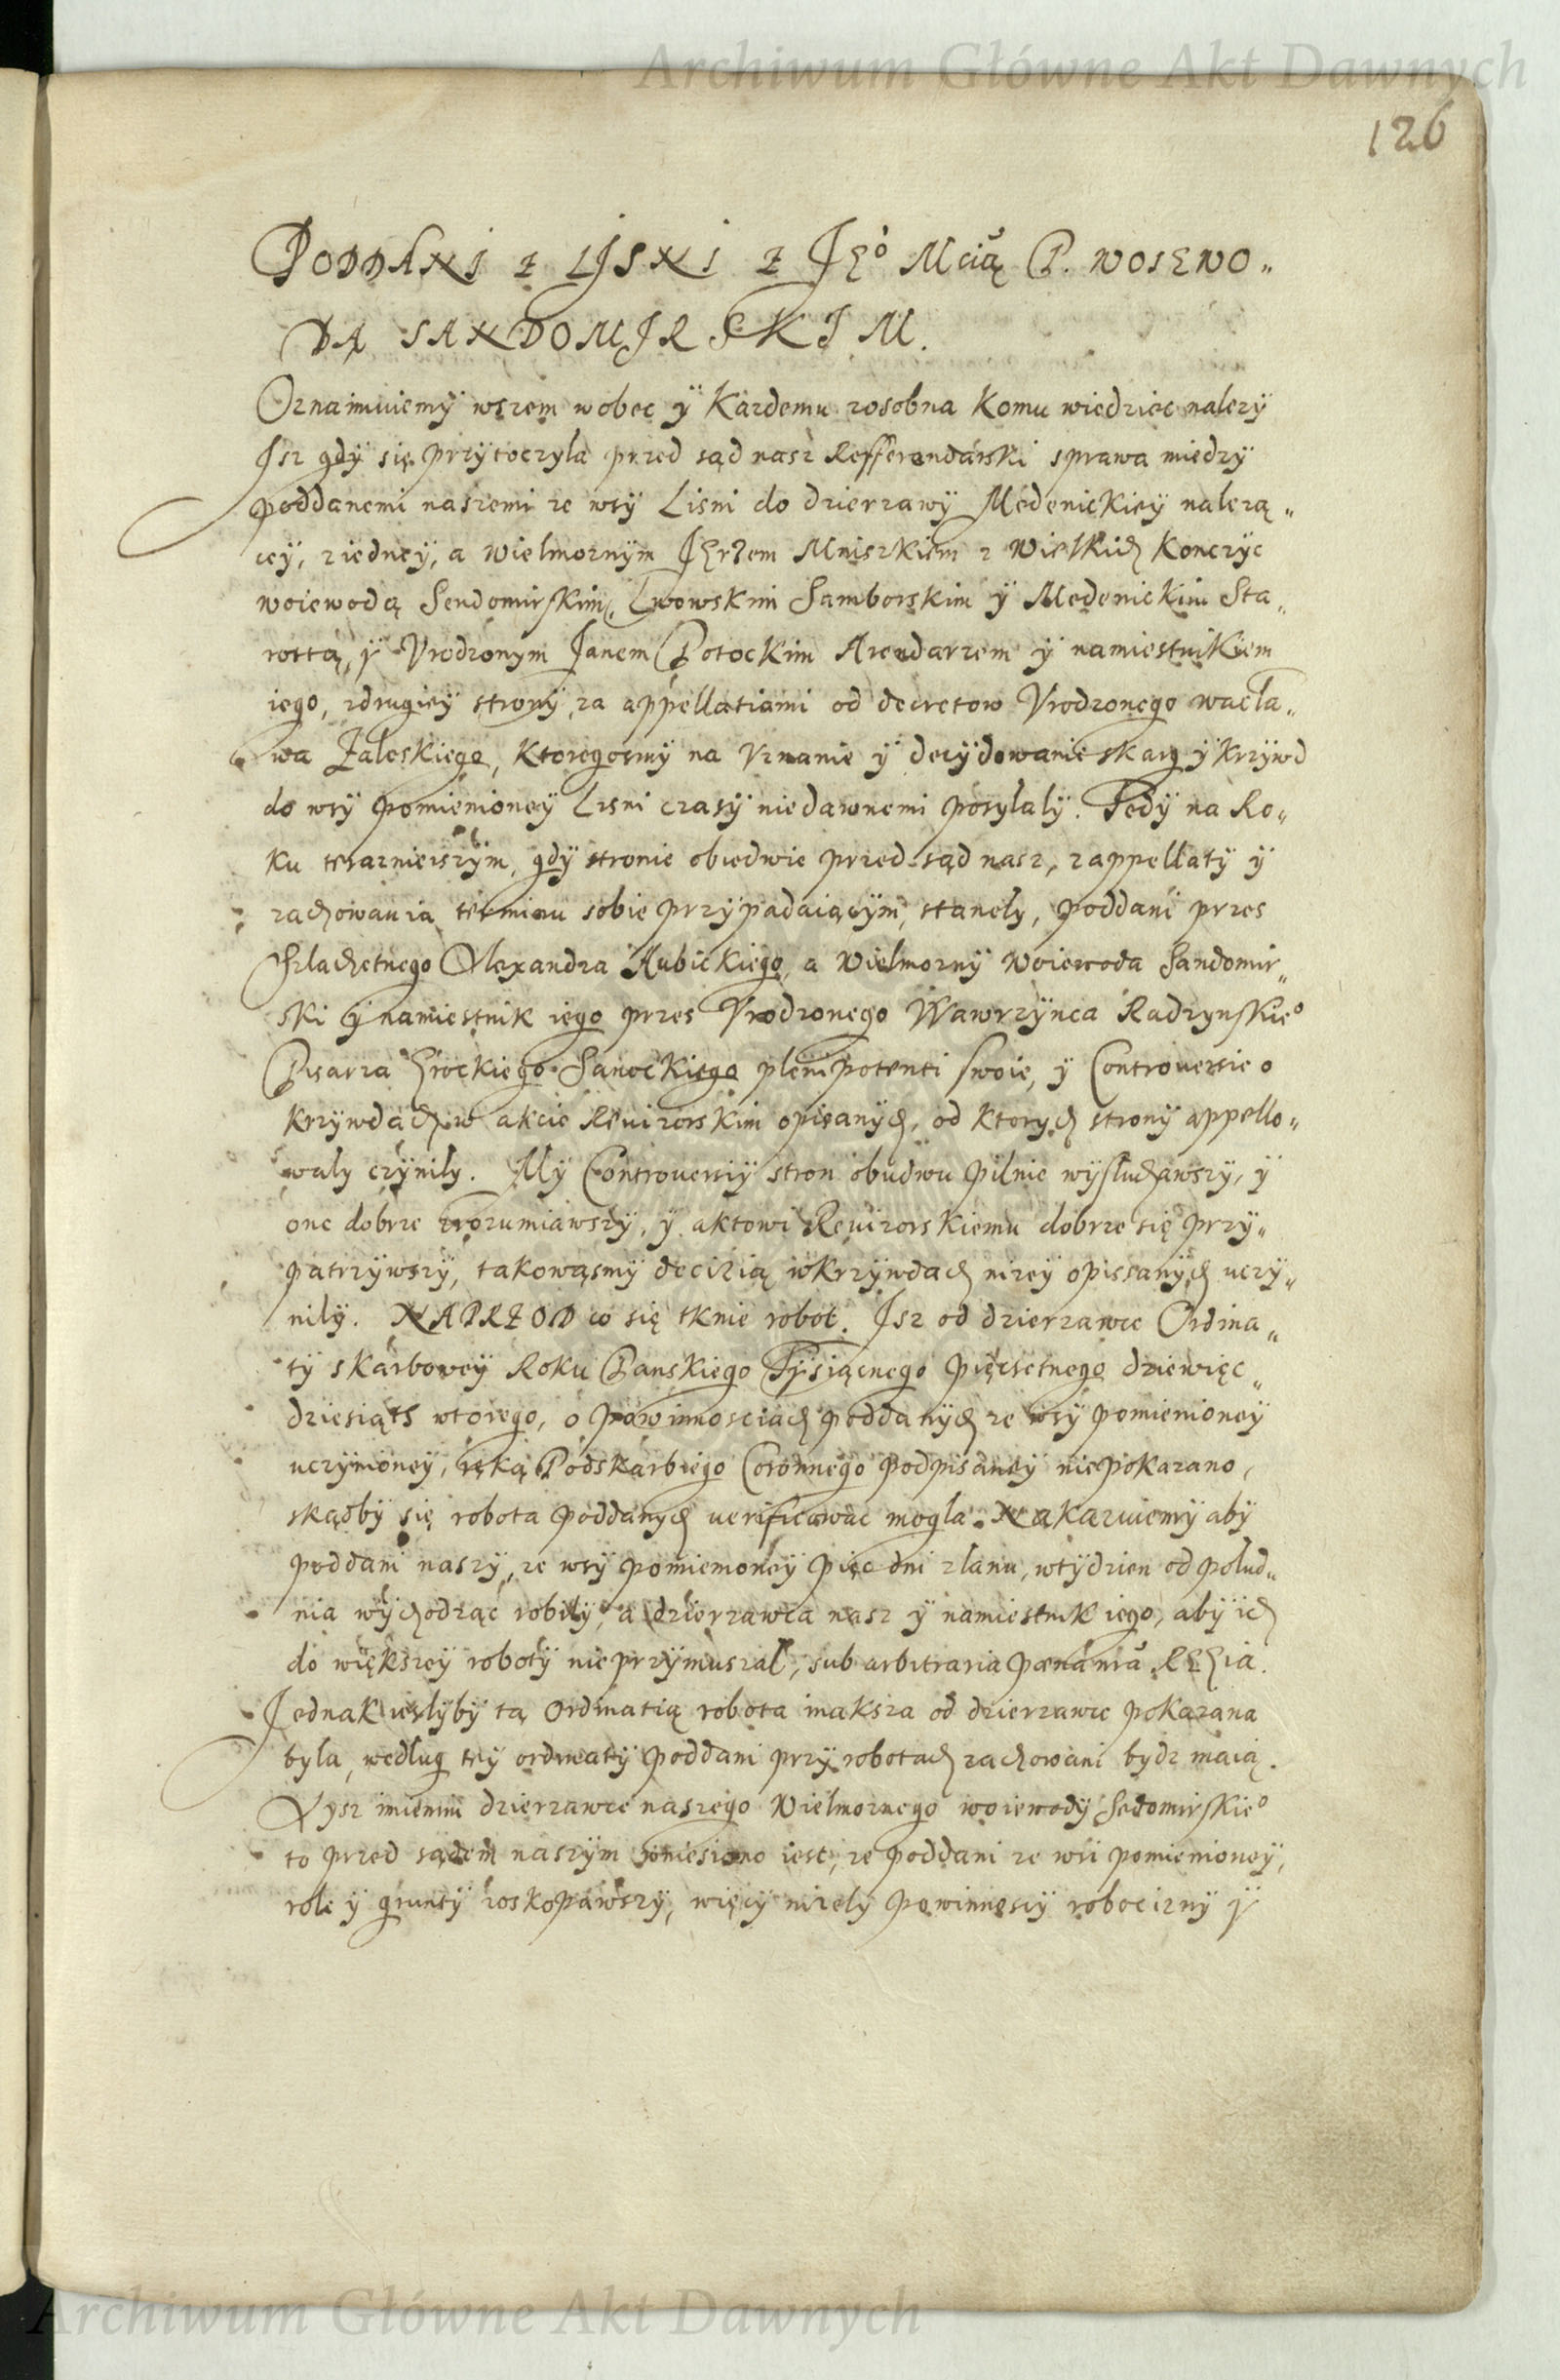 Archiwum Główne Akt Dawnych
126
PODDANI Z LJSNI Z JEo Mcią P. WOIEWO„
DĄ SANDOMJRSKIM.
Oznaimuiemy wszem wobec y Kazdemu zosobna Komu wiedziec nalezy
Isz gdy się przytoczyla przed sąd nasz Refferendarski sprawa miedzy
poddanemi naszemi ze wsy Lisni do dzierzawy Medenickiey nalezą„
cey, ziedney, a Wielmoznym Jerzem Mniszkiem z Wielkich Konczyc
woiewodą Sendomirskim, Lwowskim Samborskim y Medenickim Sta„
rostą, y Vrodzonym Janem Potockim Arendarzem y namiestnikiem
iego, zdrugiey strony, za appellatiami od decretow Vrodzonego wacła„
wa Zaleskiego, Ktoregosmy na Vznanie y decydowanie skarg y Krzywd
do wsy pomienioney Lisni czasy niedawnemi posylaly. Tedy na Ro„
ku teraznieiszym, gdy stronie obiedwie przed sąd nasz, zappellaty y
zachowania terminu sobie przypadaiącym, stanely, poddani przes
Szlachetnego Alexandra Hubickiego, a Wielmozny Woiewoda Sandomir„
ski y namiestnik iego przes Vrodzonego Wawrzynca Radzynskieo
Pisarza Grockiego Sanockiego plenipotenti swoie, y Controuersie o
krzywdach w akcie Reuizorskim opisanych, od ktorych strony appello„
waly czynily. My Controuersiy stron obudwu pilnie wysluchawszy, y
one dobrze zrozumiawszy, y aktowi Reuizorskiemu dobrze się przy„
patrzywszy, takowąsmy decizią wkrzywdach nizey opissanych uczy„
nily. NAPRZOD co się tknie robot. Isz od dzierzawce Ordina„
ty skarbowey Roku Panskiego Tysiącnego pięcsetnego dziewięc„
dziesiąts wtorego, o powinnosciach poddanych ze wsy pomienioney
uczynioney, ręką Podskarbiego Coronnego podpisaney niepokazano,
skądby się robota poddanych uerificowac mogla. Nakazuiemy aby
poddani naszy, ze wsy pomienioney pięc dni zlanu, wtydzien od polud„
nia wychodząc robily, a dzierzawca nasz y namiestnik iego, aby ich
do większey roboty nie przymuszal, sub arbitraria pœna nra REGia.
Jednak iesliby tą Ordinatią robota inaksza od dzierzawce pokazana
byla, według tey ordinaty poddani przy robotach zachowani bydz maią.
Xysz imieniem dzierzawce naszego Wielmoznego woiewody Sedomirskieo
to przed sądem naszym doniesiono iest, ze poddani ze wsi pomienioney,
role y grunty roskopawszy, więcy nizely powinnosiy robocizny y
Archiwum Główne Akt Dawnych